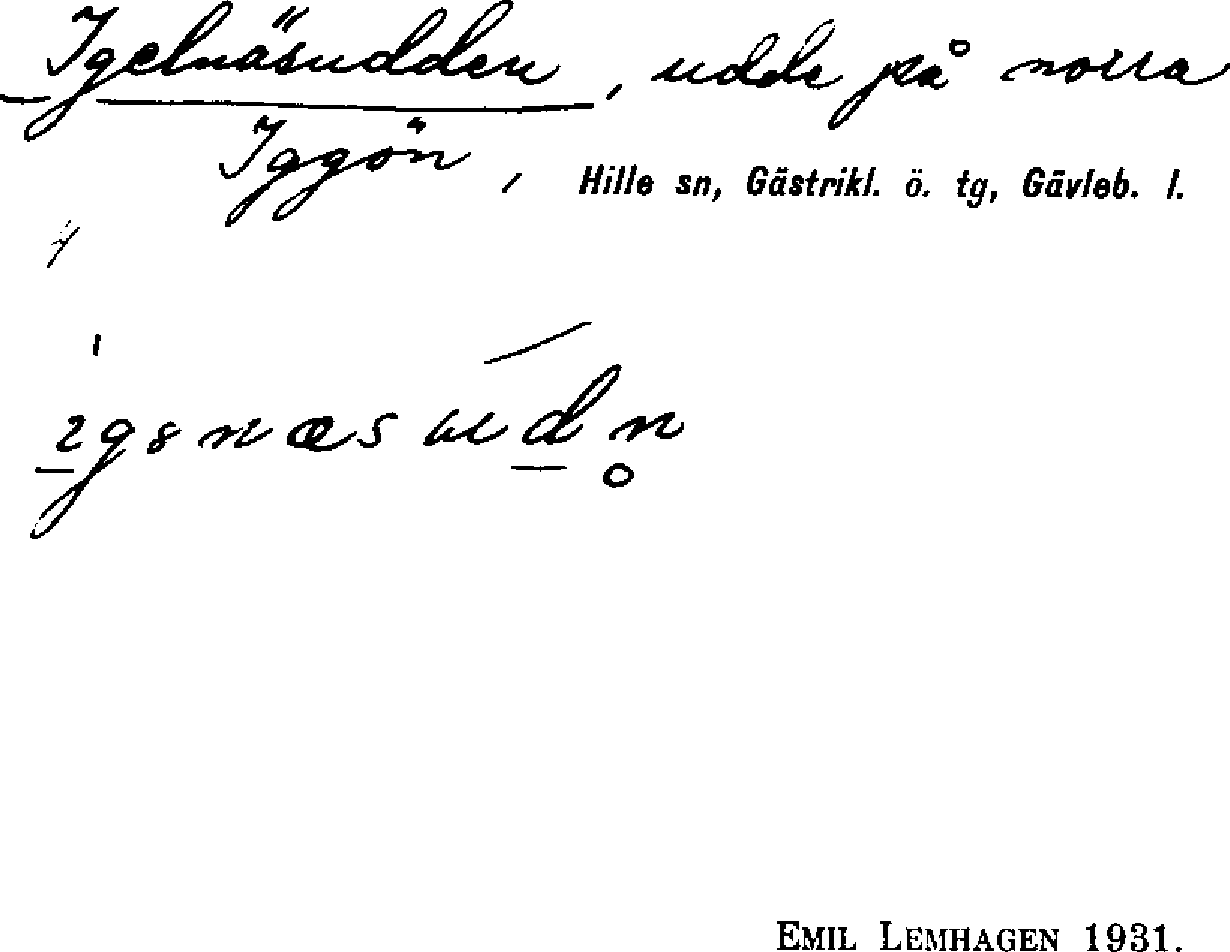 Igelnäsudden, udde på norra
Iggön, Hille sn, Gästrikl. ö. tg, Gävleb. l.
EMIL LEMHAGEN 1931.